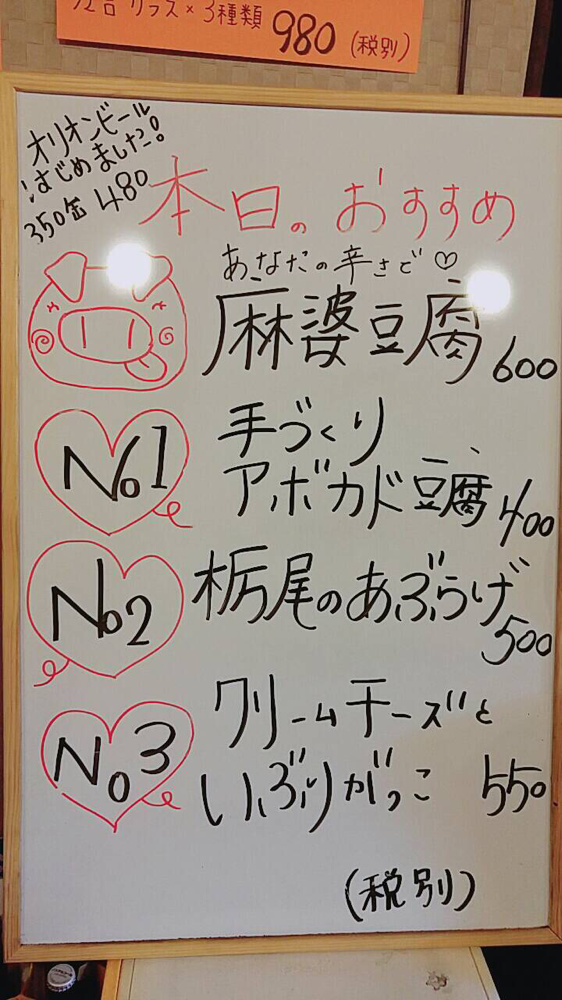 グラス×3種類 980 (税別)
オリオンビール
はじめました!
350缶 480
本日のおすすめ
あなたの辛さで♡
麻婆豆腐 600
No1
手づくり
アボカド豆腐 400
No2
栃尾のあぶらげ
500
No3
クリームチーズと
いぶりがっこ 550
(税別)